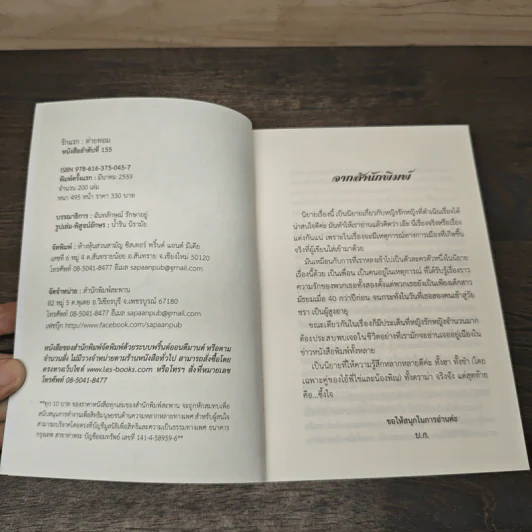 รักแรก : ค่ายหอม
หนังสือลำดับที่ 155
ISBN 978-616-375-045-7
พิมพ์ครั้งแรก : มีนาคม 2559
จำนวน 200 เล่ม
หนา 495 หน้า ราคา 330 บาท
บรรณาธิการ : ฉันทลักษณ์ รักษาอยู่
รูปเล่ม-พิสูจน์อักษร : น้าริน นิรามัย
จัดพิมพ์ : ห้างหุ้นส่วนสามัญ ซิสเตอร์ พริ้นต์ แอนด์ มีเดีย
เลขที่ 6 หมู่ 4 ต.สันทรายน้อย อ.สันทราย จ.เชียงใหม่ 50120
โทรศัพท์ 08-5041-8477 อีเมล sapaanpub@gmail.com
จัดจำหน่าย : สำนักพิมพ์สะพาน
82 หมู่ 5 ต.พุเตย อ.วิเชียรบุรี จ.เพชรบูรณ์ 67180
โทรศัพท์ 08-5041-8477 อีเมล sapaanpub@gmail.com
เฟซบุ๊ก http://www.facebook.com/sapaanpub
หนังสือของสำนักพิมพ์จัดพิมพ์ด้วยระบบพริ้นต์ออนดีมานด์ หรือตาม
จำนวนสั่ง ไม่มีวางจำหน่ายตามร้านหนังสือทั่วไป สามารถสั่งซื้อโดย
ตรงทางเว็บไซต์ www.les-books.com หรือโทรฯ สั่งที่หมายเลข
โทรศัพท์ 08-5041-8477
**ทุก 10 บาท ของราคาหนังสือทุกเล่มของสำนักพิมพ์สะพาน จะถูกหักสมทบเพื่อ
สนับสนุนการทำงานเพื่อสิทธิมนุษยชนด้านความหลากหลายทางเพศ สำหรับผู้สนใจ
สามารถบริจาคโดยตรงที่บัญชีมูลนิธิเพื่อสิทธิและความเป็นธรรมทางเพศ ธนาคาร
กรุงเทพ สาขาท่าพระ บัญชีออมทรัพย์ เลขที่ 141-4-58959-6**
จากสำนักพิมพ์
นิยายเรื่องนี้ เป็นนิยายเกี่ยวกับหญิงรักหญิงที่ดำเนินเรื่องได้
น่าสนใจดีค่ะ มันทำให้เราอ่านแล้วคิดว่า เอ๊ะ นี่เรื่องจริงหรือเรื่อง
แต่งกันแน่ เพราะในเรื่องจะมีเหตุการณ์ทางการเมืองที่เกิดขึ้น
จริงที่ผู้เขียนใส่เข้ามาด้วย
มันเหมือนกับการที่เราหลงเข้าไปเป็นตัวละครตัวหนึ่งในนิยาย
เรื่องนี้ด้วย เป็นเพื่อน เป็นคนอยู่ในเหตุการณ์ ที่ได้รับรู้เรื่องราว
ความรักของพวกเธอทั้งสองตั้งแต่พวกเธอยังเป็นเพียงเด็กสาว
มัธยมเมื่อ 40 กว่าปีก่อน จนกระทั่งในวันที่เธอสองคนเข้าสู่วัย
ชรา เป็นผู้สูงอายุ
ขณะเดียวกันในเรื่องก็มีประเด็นที่หญิงรักหญิงจำนวนมาก
ต้องประสบพบเจอในชีวิตอย่างที่เรามักจะอ่านเจออยู่เนืองใน
ข่าวหนังสือพิมพ์ทั้งหลาย
เป็นนิยายที่ให้ความรู้สึกหลากหลายดีค่ะ ทั้งฮา ทั้งซ่า (โดย
เฉพาะคู่ของโอ๋พี่ไข่และน้องพิณ) ทั้งดราม่า จริงจัง แต่สุดท้าย
คือ...ซึ้งใจ
ขอให้สนุกในการอ่านค่ะ
บ.ก.